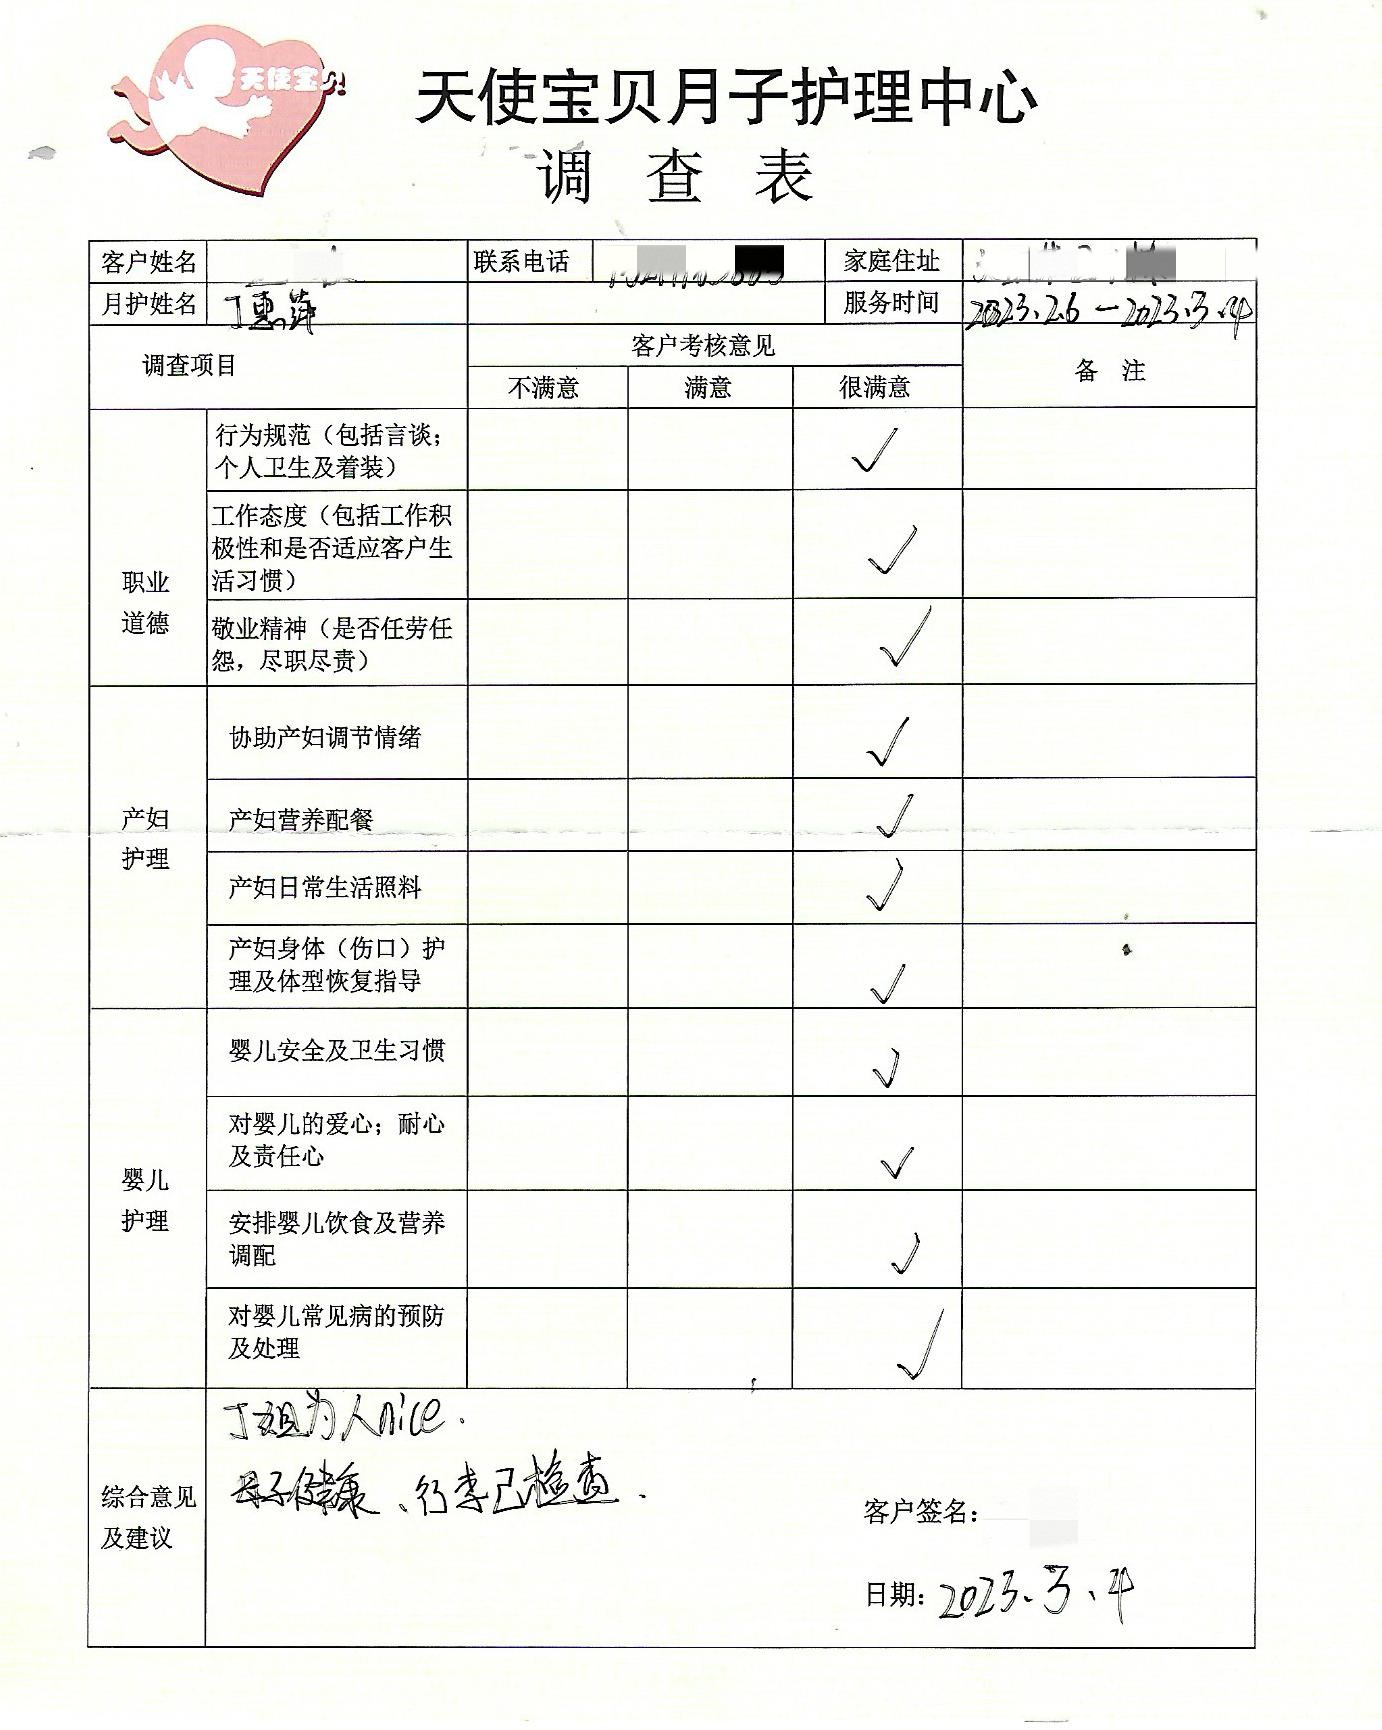 天使宝贝
天使宝贝月子护理中心
调查表
客户姓名 联系电话 家庭住址
月护姓名 丁惠萍 服务时间 2023.2.6—2023.3.4
调查项目 客户考核意见 备注
不满意 满意 很满意
职业
道德
行为规范（包括言谈；
个人卫生及着装） ✓
工作态度（包括工作积
极性和是否适应客户生
活习惯） ✓
敬业精神（是否任劳任
怨，尽职尽责） ✓
产妇
护理
协助产妇调节情绪 ✓
产妇营养配餐 ✓
产妇日常生活照料 ✓
产妇身体（伤口）护
理及体型恢复指导 ✓
婴儿
护理
婴儿安全及卫生习惯 ✓
对婴儿的爱心；耐心
及责任心 ✓
安排婴儿饮食及营养
调配 ✓
对婴儿常见病的预防
及处理 ✓
综合意见
及建议
丁姐为人nice.
母子健康、行李已检查.
客户签名：
日期：2023.3.4